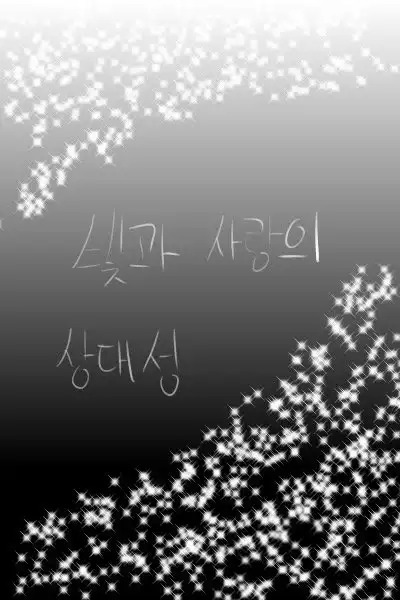 빛과 사랑의
상대성